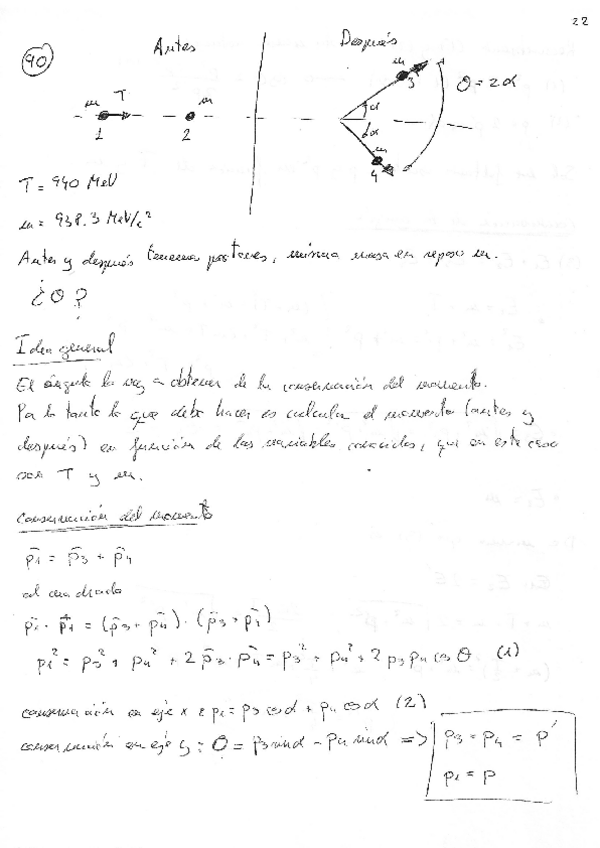 22
90
Antes
Después
m T m
1 2
m
3
θ = 2α
α
α
m
4
T = 940 MeV
m = 938.3 MeV/c²
Antes y después tenemos protones, misma masa en reposo m.
¿θ?
Idea general
El ángulo lo voy a obtener de la conservación del momento.
Por lo tanto lo que debo hacer es calcular el momento (antes y
después) en función de las variables conocidas, que en este caso
son T y m.
Conservación del momento
p̄1 = p̄3 + p̄4
al cuadrado
p̄1 · p̄1 = (p̄3 + p̄4) · (p̄3 + p̄4)
p1² = p3² + p4² + 2 p̄3 · p̄4 = p3² + p4² + 2 p3 p4 cos θ (1)
conservación en eje x : p1 = p3 cos α + p4 cos α (2)
conservación en eje y : 0 = p3 sin α - p4 sin α => p3 = p4 = p'
p1 = p